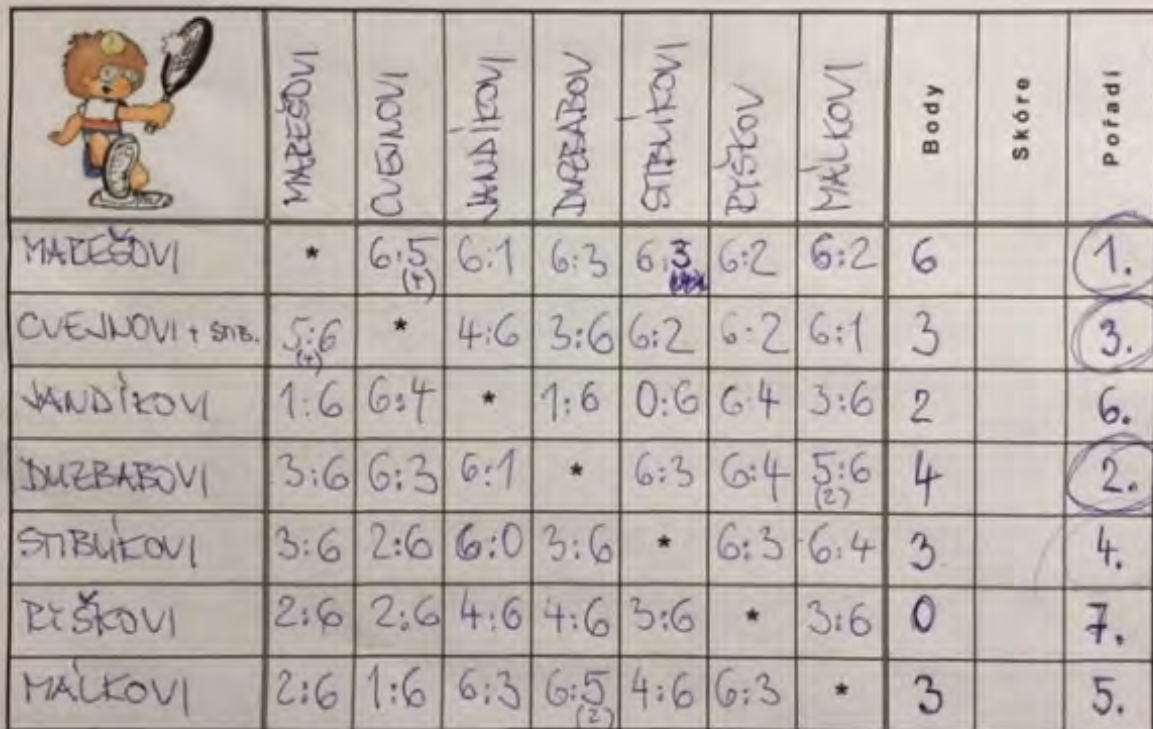 MAREŠOVI CVEJNOVI JANDÍKOVI DVZBABOV STIBLÍKOVI RYŠKOV MÁLKOVI Body Skóre Pořadí
MAREŠOVI * 6:5 6:1 6:3 6:3 6:2 6:2 6 1.
(4)
CVEJNOVI + STIB. 5:6 * 4:6 3:6 6:2 6:2 6:1 3 3.
(4)
JANDÍKOVI 1:6 6:4 * 1:6 0:6 6:4 3:6 2 6.
DVZBABOVI 3:6 6:3 6:1 * 6:3 6:4 5:6 4 2.
(2)
STIBLÍKOVI 3:6 2:6 6:0 3:6 * 6:3 6:4 3 4.
RYŠKOVI 2:6 2:6 4:6 4:6 3:6 * 3:6 0 7.
MÁLKOVI 2:6 1:6 6:3 6:5 4:6 6:3 * 3 5.
(2)